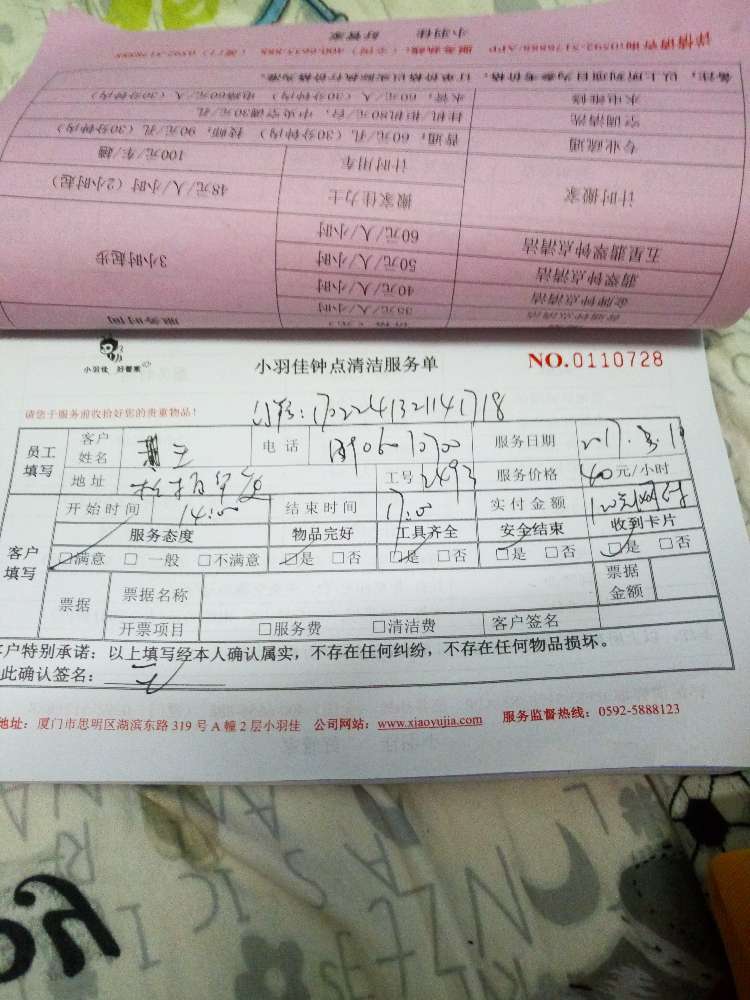 普通钟点清洁 35元/人/小时
金牌钟点清洁 40元/人/小时 3小时起步
翡翠钟点清洁 50元/人/小时
五星翡翠钟点清洁 60元/人/小时
计时搬家 搬家佳力士 48元/人/小时(2小时起)
计时用车 100元/车/趟
专业疏通 普通:60元/孔(30分钟内) 技师:90元/孔(30分钟内)
空调清洗 挂机 柜机80元/台,中央空调30元/孔
水电维修 水管:60元/人(30分钟内) 电路60元/人(30分钟内)
备注:以上所列项目为参考价格,订单价格以实际执行价格为准。
小羽佳 好管家
小羽佳 好管家
小羽佳钟点清洁服务单
NO.0110728
请您于服务前收拾好您的贵重物品!
员工填写 客户姓名 王 电话 服务日期
地址 工号 2493 服务价格 40 元/小时
客户填写 开始时间 14:00 结束时间 17:00 实付金额
服务态度 物品完好 工具齐全 安全结束 收到卡片
□满意 □一般 □不满意 □是 □否 □是 □否 □是 □否 □是 □否
票据 票据名称 票据金额
开票项目 □服务费 □清洁费 客户签名
客户特别承诺:以上填写经本人确认属实,不存在任何纠纷,不存在任何物品损坏。
此确认签名:
地址:厦门市思明区湖滨东路 319 号 A 幢 2 层小羽佳 公司网站:www.xiaoyujia.com 服务监督热线:0592-5888123